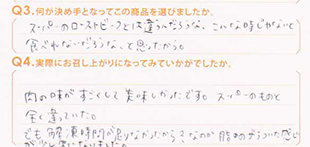 Q3.何が決め手となってこの商品を選びましたか。
スーパーのローストビーフとは違うんだろうな、こんな時じゃないと
食べれないだろうな、と思ったから。
Q4.実際にお召し上がりになってみていかがでしたか。
肉の味がすごくして美味しかったです。スーパーのものと
全く違っていた。
でも解凍時間が足りなかったから?なのか 脂のういた感じ
が少し気になりました